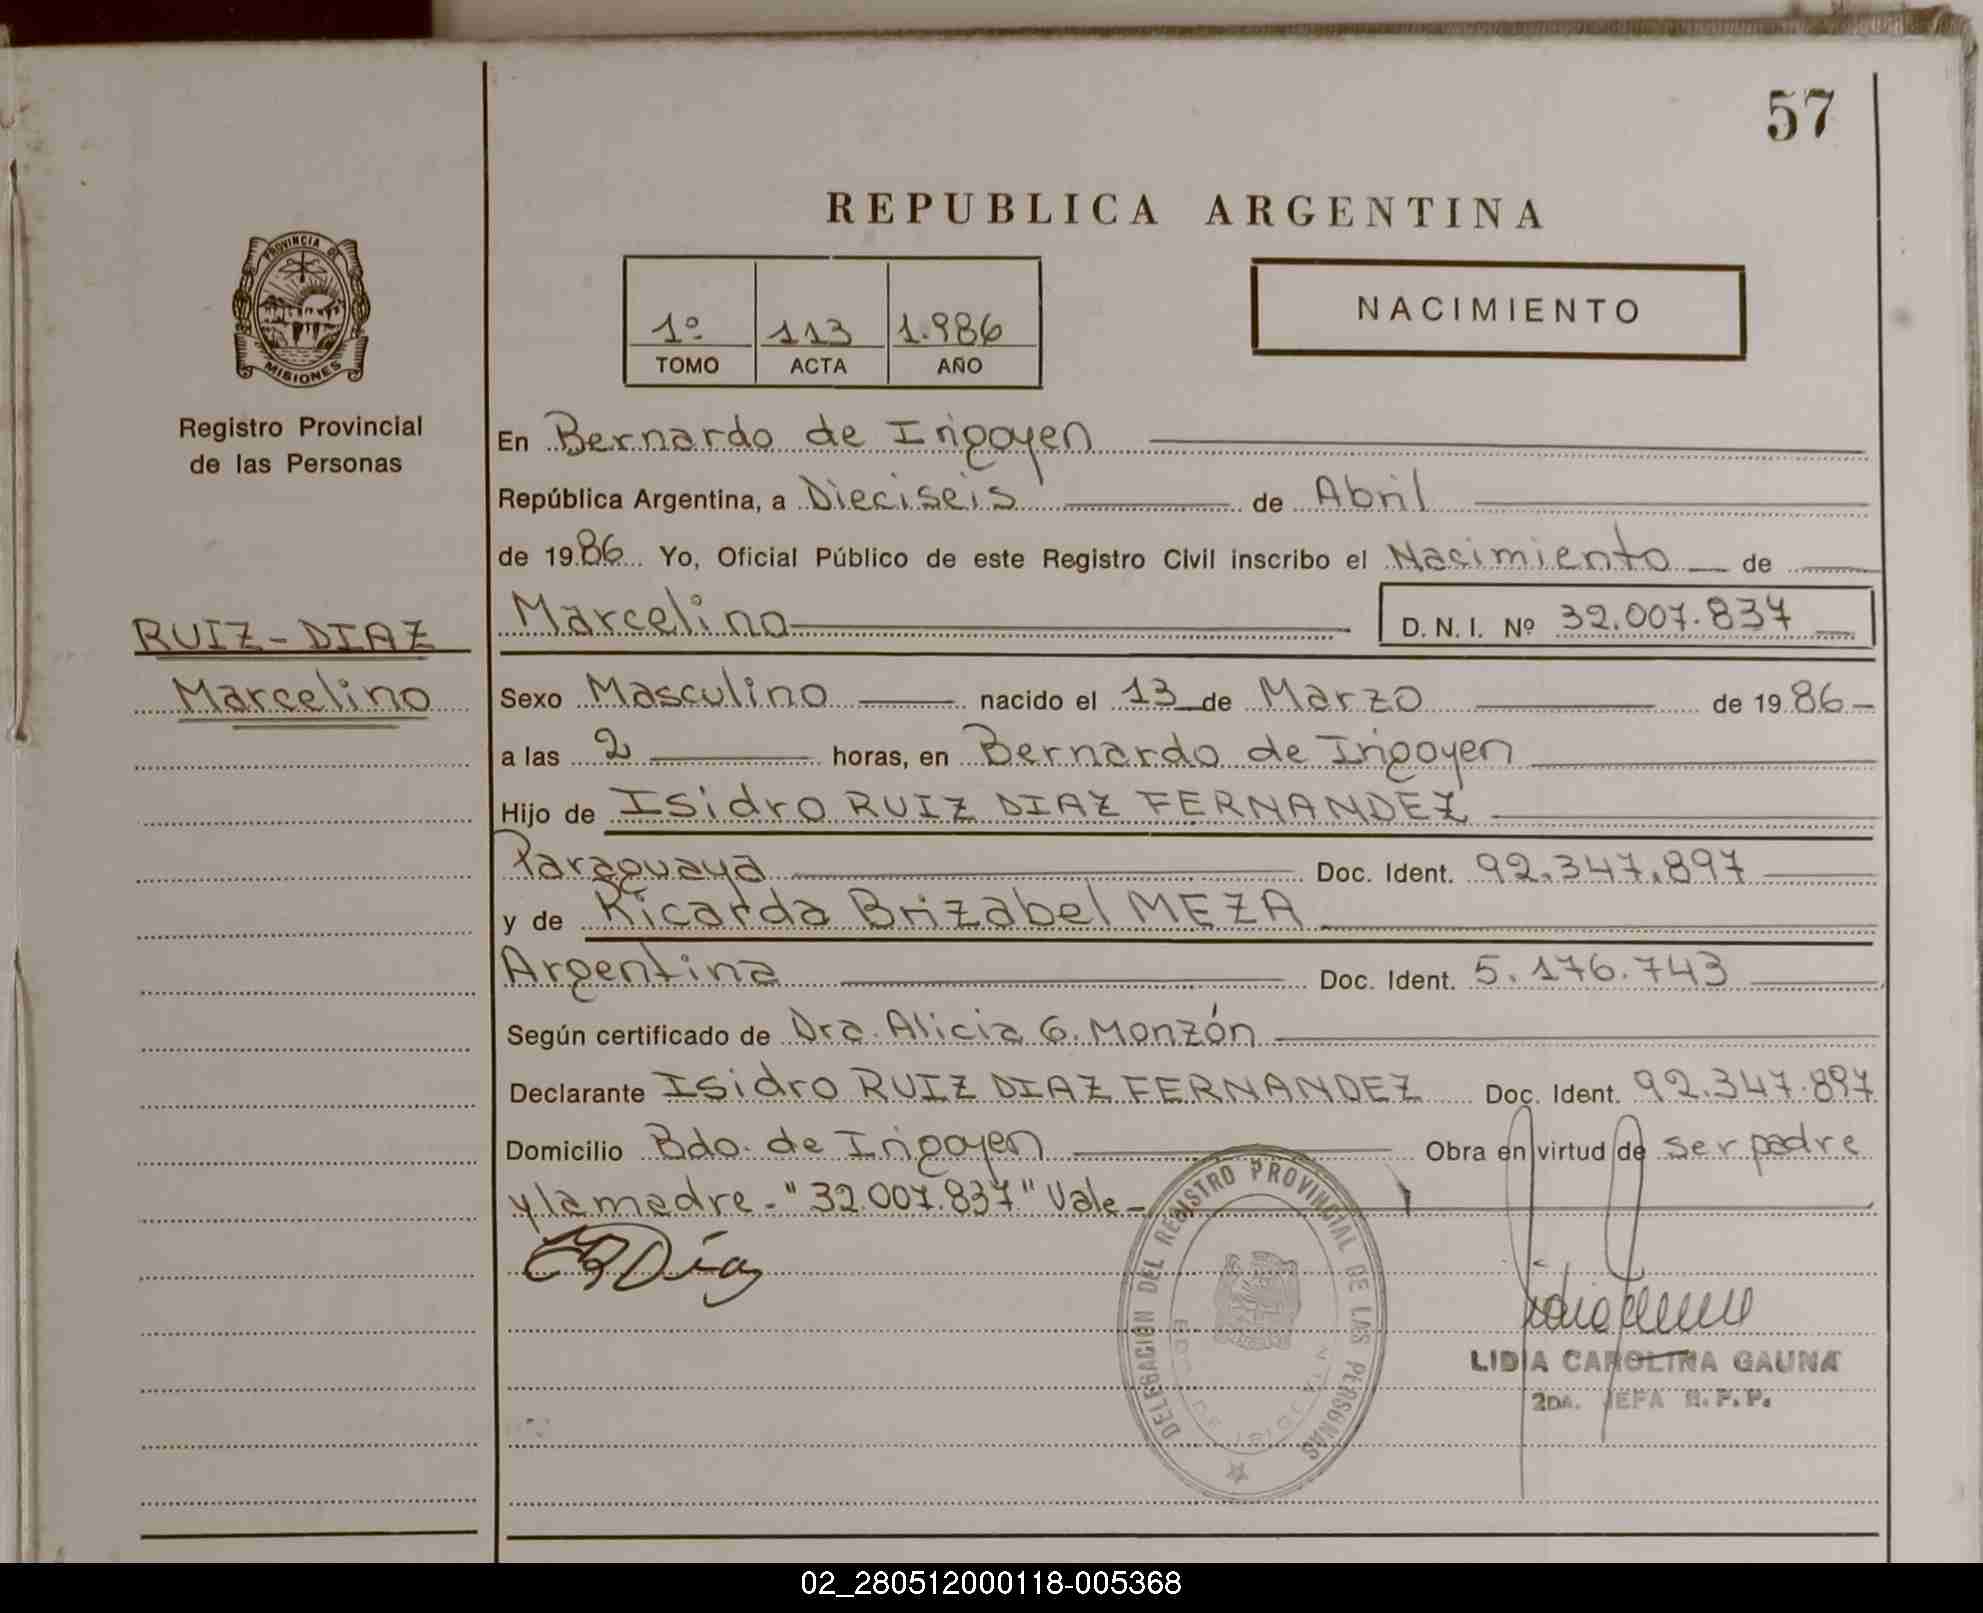 57
REPUBLICA ARGENTINA
PROVINCIA DE
MISIONES
Registro Provincial
de las Personas
1º 113 1.986
TOMO ACTA AÑO
NACIMIENTO
En Bernardo de Irigoyen
República Argentina, a Dieciseis de Abril
de 1986 Yo, Oficial Público de este Registro Civil inscribo el Nacimiento de
RUIZ-DIAZ
Marcelino
Marcelino D. N. I. Nº 32.007.837
Sexo Masculino nacido el 13 de Marzo de 1986-
a las 2 horas, en Bernardo de Irigoyen
Hijo de Isidro RUIZ DIAZ FERNANDEZ
Paraguaya Doc. Ident. 92.347.897
y de Ricarda Brizabel MEZA
Argentina Doc. Ident. 5.176.743
Según certificado de Dra. Alicia G. Monzón
Declarante Isidro RUIZ DIAZ FERNANDEZ Doc. Ident. 92.347.897
Domicilio Bdo. de Irigoyen Obra en virtud de ser padre
y la madre - "32.007.837" Vale-
DELEGACION DEL REGISTRO PROVINCIAL DE LAS PERSONAS
LIDIA CAROLINA GAUNA
2DA. JEFA R. P. P.
02_280512000118-005368